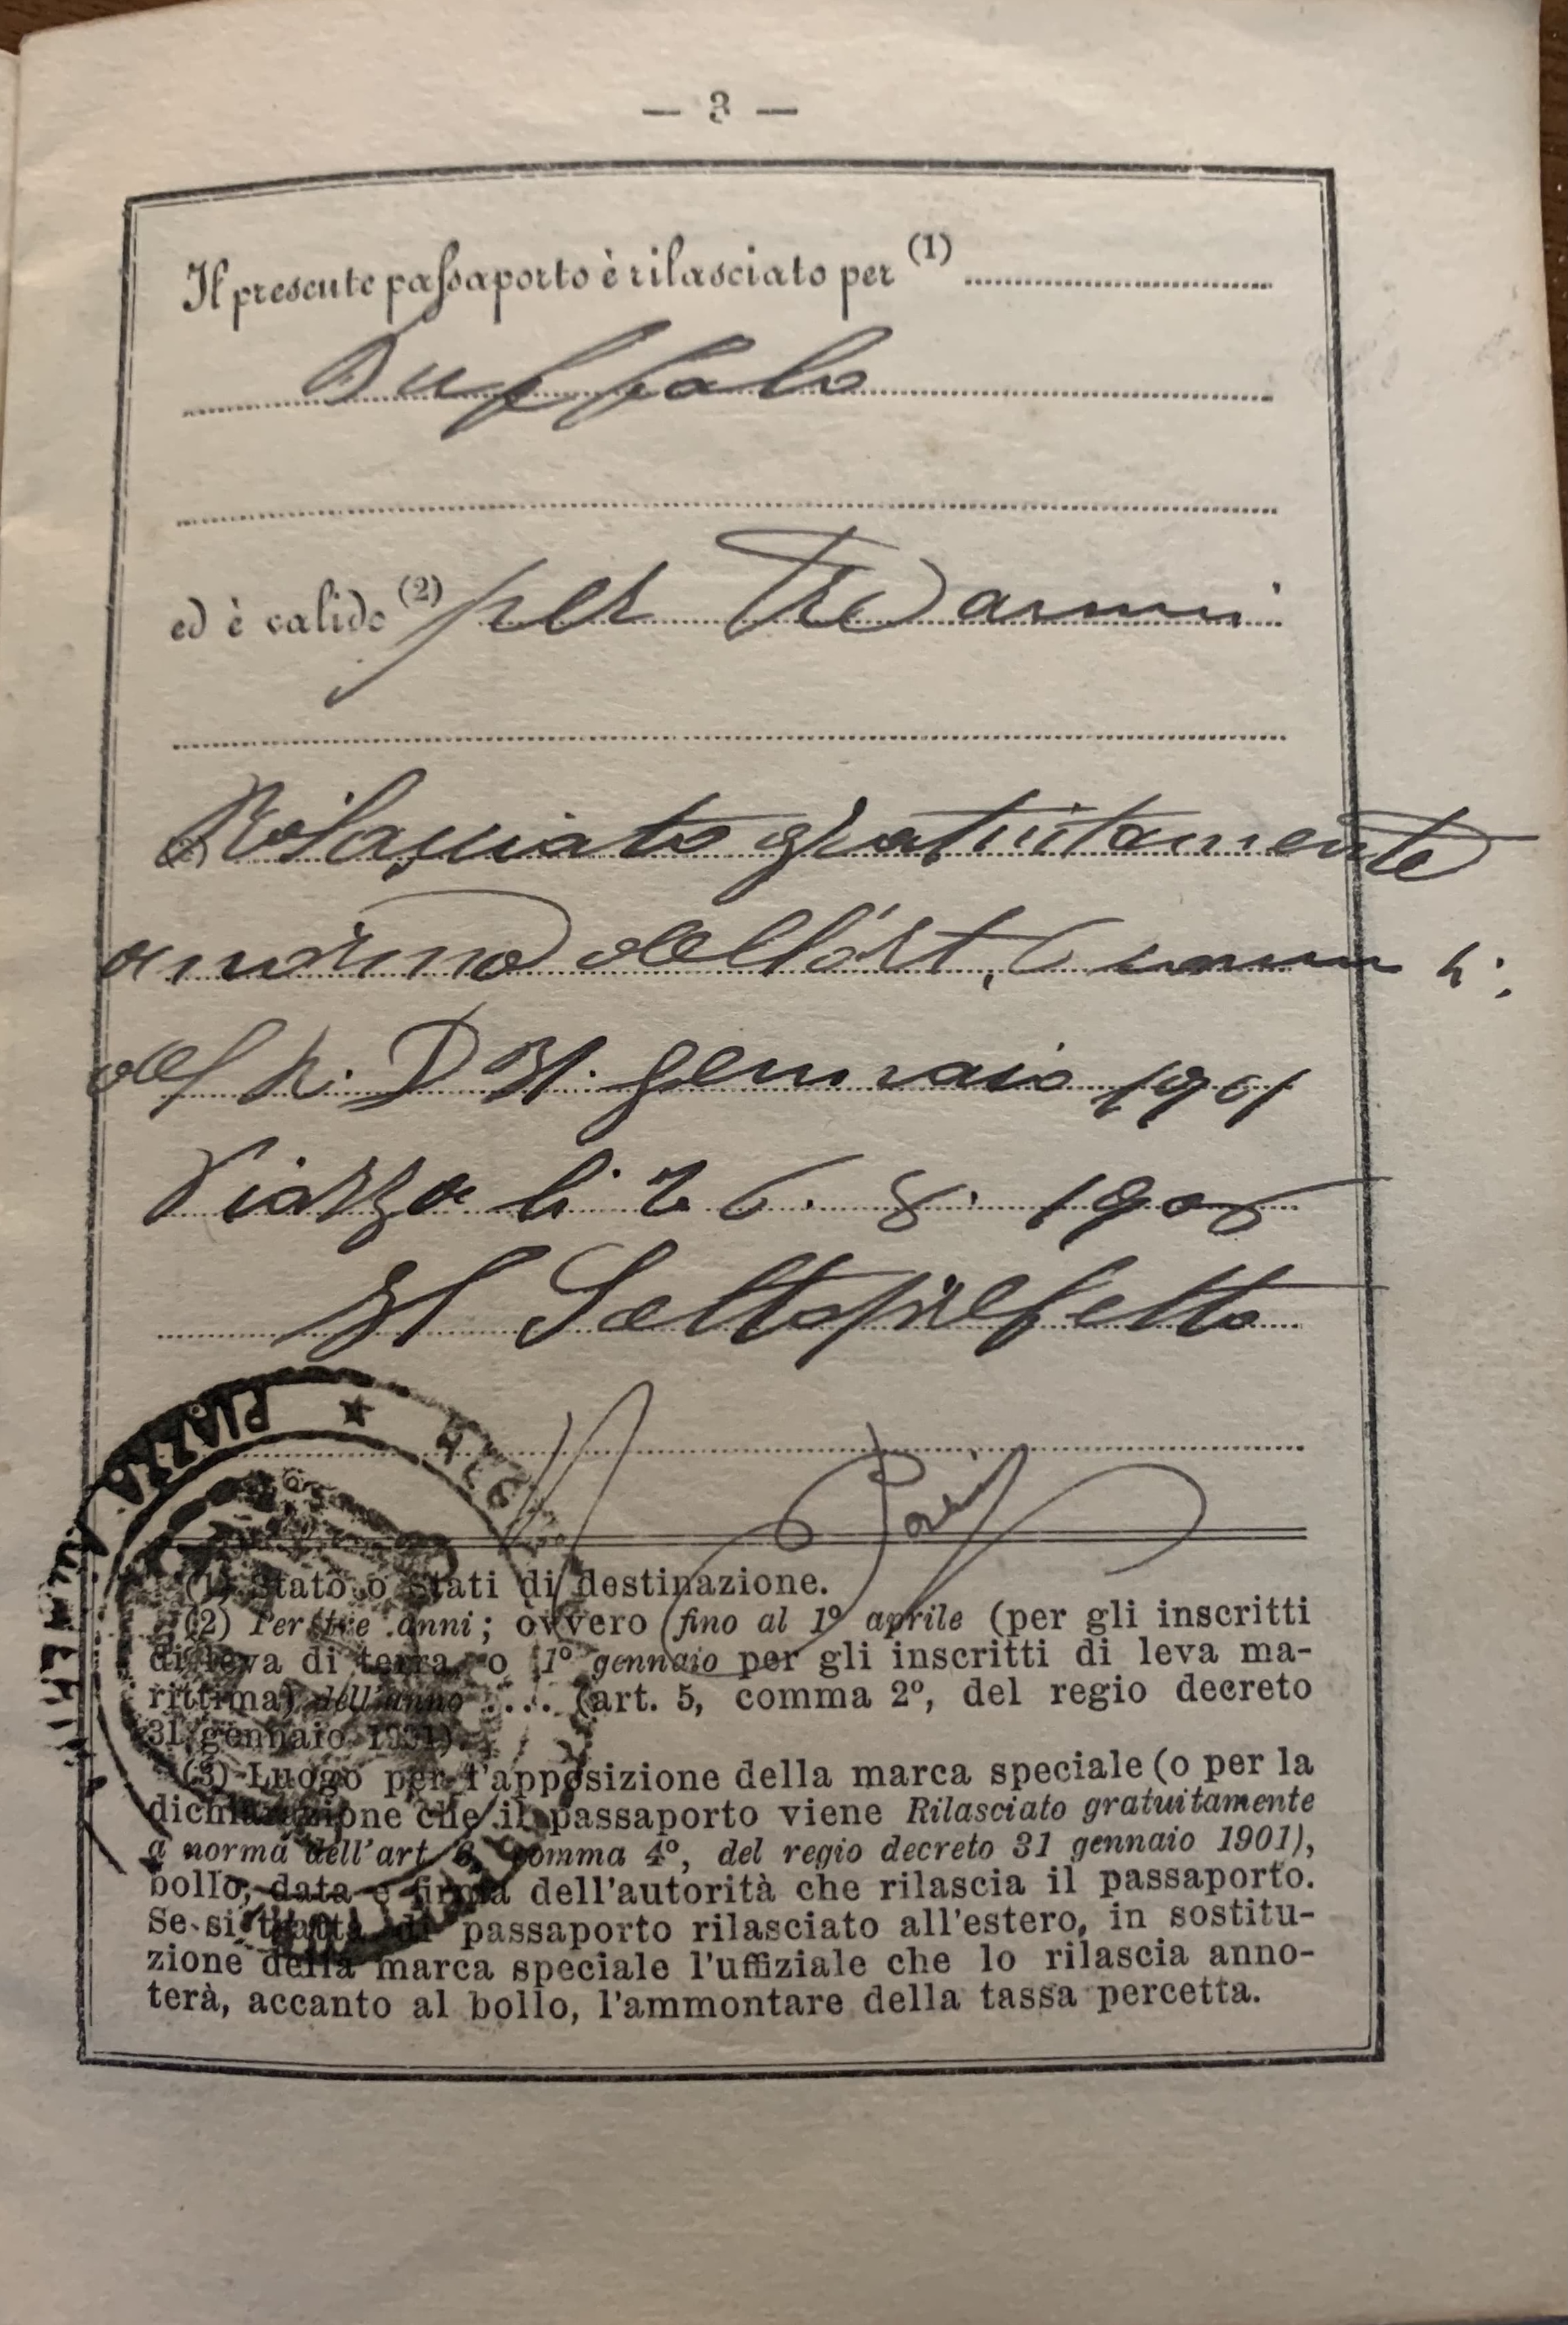 — 3 —
Il presente passaporto è rilasciato per (1)
Buffalo
ed è valido (2) per tre anni
Rilasciato gratuitamente
a norma dell'art. 6 comm 4:
del R. D 31. Gennaio 1901
Piazza li 26. 8. 1905
Il Sottoprefetto
PIAZZA ARMERINA ★
(1) Stato o stati di destinazione.
(2) Per tre anni; ovvero fino al 1º aprile (per gli inscritti
di leva di terra, o 1º gennaio per gli inscritti di leva ma-
rittima) dell'anno .... (art. 5, comma 2º, del regio decreto
31 gennaio 1901).
(3) Luogo per l'apposizione della marca speciale (o per la
dichiarazione che il passaporto viene Rilasciato gratuitamente
a norma dell'art. 6, comma 4º, del regio decreto 31 gennaio 1901),
bollo, data e firma dell'autorità che rilascia il passaporto.
Se si tratta di passaporto rilasciato all'estero, in sostitu-
zione della marca speciale l'uffiziale che lo rilascia anno-
terà, accanto al bollo, l'ammontare della tassa percetta.